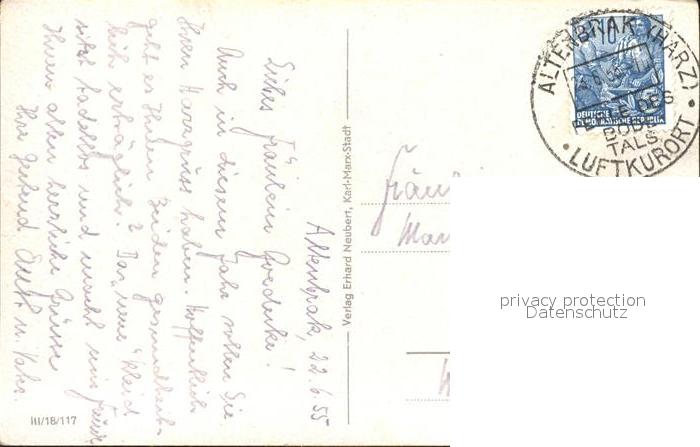 Altenbrak, 22.6.55
Liebes Fräulein
Auch in diesem Jahr sollen Sie
Ihren Harzgruss haben. Hoffentlich
geht es Ihnen beiden gesundheit-
lich erträglich? Das neue Kleid
sitzt tadellos und macht uns Freude
Ihnen allen herzliche Grüsse
Ihre
Verlag Erhard Neubert, Karl-Marx-Stadt
III/18/117
ALTENBRAK (HARZ)
DES
BODE
TALS
LUFTKURORT
DEUTSCHE
DEMOKRATISCHE REPUBLIK
Fräul
Mar
privacy protection
Datenschutz